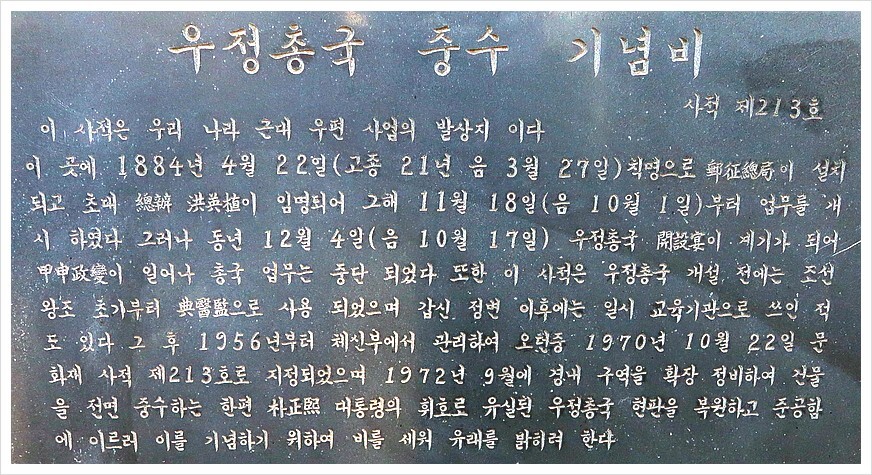 우정총국 중수 기념비
사적 제213호
이 사적은 우리 나라 근대 우편 사업의 발상지 이다
이 곳에 1884년 4월 22일(고종 21년 음 3월 27일)칙명으로 郵征總局이 설치
되고 초대 總辦 洪英植이 임명되어 그해 11월 18일(음 10월 1일)부터 업무를 개
시 하였다 그러나 동년 12월 4일(음 10월 17일) 우정총국 開設宴이 계기가 되어
甲申政變이 일어나 총국 업무는 중단 되었다 또한 이 사적은 우정총국 개설 전에는 조선
왕조 초기부터 典醫監으로 사용 되었으며 갑신 정변 이후에는 일시 교육기관으로 쓰인 적
도 있다 그 후 1956년부터 체신부에서 관리하여 오던중 1970년 10월 22일 문
화재 사적 제213호로 지정되었으며 1972년 9월에 경내 구역을 확장 정비하여 건물
을 전면 중수하는 한편 朴正熙 대통령의 휘호로 유실된 우정총국 현판을 복원하고 준공함
에 이르러 이를 기념하기 위하여 비를 세워 유래를 밝히려 한다